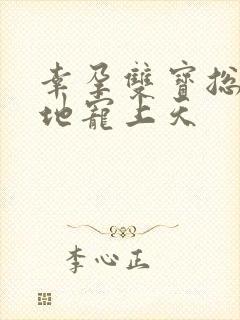 幸孕雙寶總
地寵上天
李心正